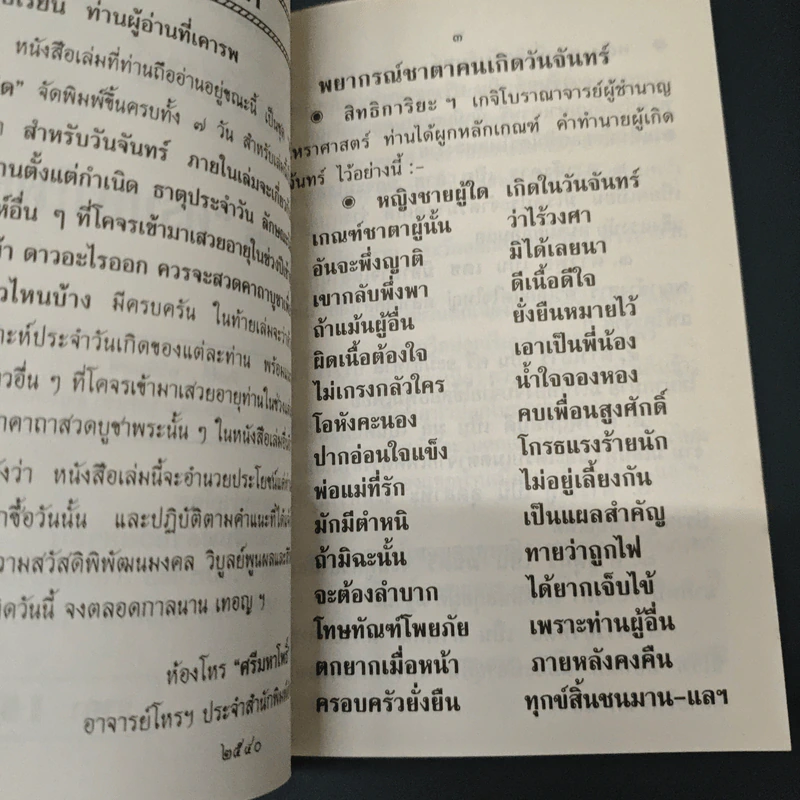 ท่านผู้อ่านที่เคารพ
หนังสือเล่มที่ท่านถืออ่านอยู่ขณะนี้
จัดพิมพ์ขึ้นครบทั้ง ๗ วัน สำหรับเล่มนี้
สำหรับวันจันทร์ ภายในเล่มจะเกี่ยวกับ
ตั้งแต่กำเนิด ธาตุประจำวัน
อื่น ๆ ที่โคจรเข้ามาเสวยอายุในช่วงปี
ดาวอะไรออก ควรจะสวดคาถาบูชา
ไหนบ้าง มีครบครัน ในท้ายเล่มจะว่า
ประจำวันเกิดของแต่ละท่าน พร้อม
อื่น ๆ ที่โคจรเข้ามาเสวยอายุท่านในช่วง
คาถาสวดบูชาพระนั้น ๆ ในหนังสือเล่ม
ว่า หนังสือเล่มนี้จะอำนวยประโยชน์แด่
ซื้อวันนั้น และปฏิบัติตามคำแนะที่ได้
สวัสดิพิพัฒนมงคล วิบูลย์พูนผล
วันนี้ จงตลอดกาลนาน เทอญ ฯ
ห้องโหร "ศรีมหาโพธิ์
อาจารย์โหรฯ ประจำสำนักพิมพ์
๒๕๔๐
๓
พยากรณ์ชาตาคนเกิดวันจันทร์
◉ สิทธิการิยะ ฯ เกจิโบราณาจารย์ผู้ชำนาญ
หราศาสตร์ ท่านได้ผูกหลักเกณฑ์ คำทำนายผู้เกิด
จันทร์ ไว้อย่างนี้ :-
◉ หญิงชายผู้ใด เกิดในวันจันทร์
เกณฑ์ชาตาผู้นั้น ว่าไร้วงศา
อันจะพึ่งญาติ มิได้เลยนา
เขากลับพึ่งพา ดีเนื้อดีใจ
ถ้าแม้นผู้อื่น ยั่งยืนหมายไว้
ผิดเนื้อต้องใจ เอาเป็นพี่น้อง
ไม่เกรงกลัวใคร น้ำใจจองหอง
โอหังคะนอง คบเพื่อนสูงศักดิ์
ปากอ่อนใจแข็ง โกรธแรงร้ายนัก
พ่อแม่ที่รัก ไม่อยู่เลี้ยงกัน
มักมีตำหนิ เป็นแผลสำคัญ
ถ้ามิฉะนั้น ทายว่าถูกไฟ
จะต้องลำบาก ได้ยากเจ็บไข้
โทษทัณฑ์โพยภัย เพราะท่านผู้อื่น
ตกยากเมื่อหน้า ภายหลังคงคืน
ครอบครัวยั่งยืน ทุกข์สิ้นชนมาน-แลฯ